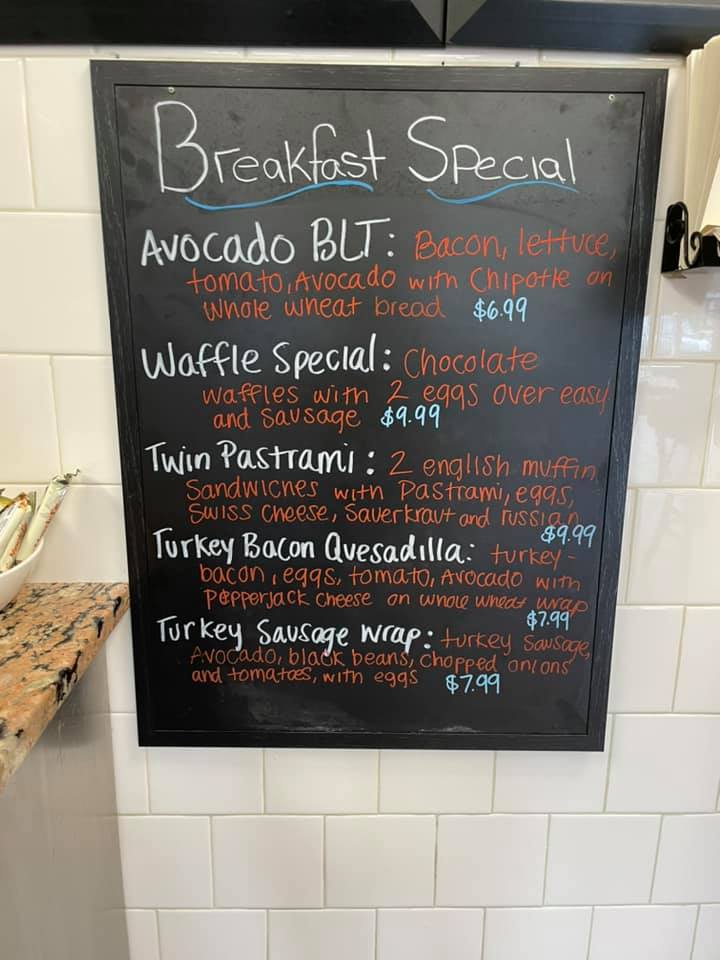 Breakfast Special
Avocado BLT: Bacon, lettuce,
tomato, Avocado with Chipotle on
whole wheat bread $6.99
Waffle Special: Chocolate
waffles with 2 eggs over easy
and sausage $9.99
Twin Pastrami: 2 english muffin
Sandwiches with Pastrami, eggs,
Swiss cheese, Sauerkraut and russian
$9.99
Turkey Bacon Quesadilla: turkey-
bacon, eggs, tomato, Avocado with
pepperjack cheese on whole wheat wrap
$7.99
Turkey Sausage wrap: turkey sausage,
Avocado, black beans, chopped onions
and tomatoes, with eggs $7.99